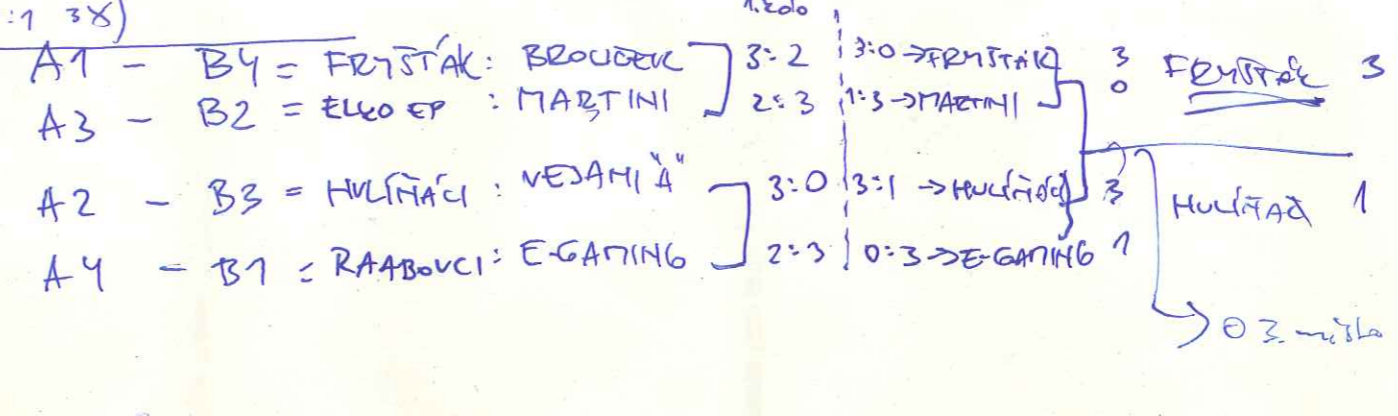 :1 3X)
1. kolo 1
A1 - B4 = FRYŠTÁK : BROUČEK 3:2 3:0 → FRYŠTÁK 3 FRYŠTÁK 3
A3 - B2 = ELKO EP : MARTINI 2:3 1:3 → MARTINI 0
A2 - B3 = HULÍŇÁCI : VEJAMI "A" 3:0 3:1 → HULÍŇÁCI 3 HULÍŇÁCI 1
A4 - B1 = RAABOVCI : E-GAMING 2:3 0:3 → E-GAMING 1
O 3. místo